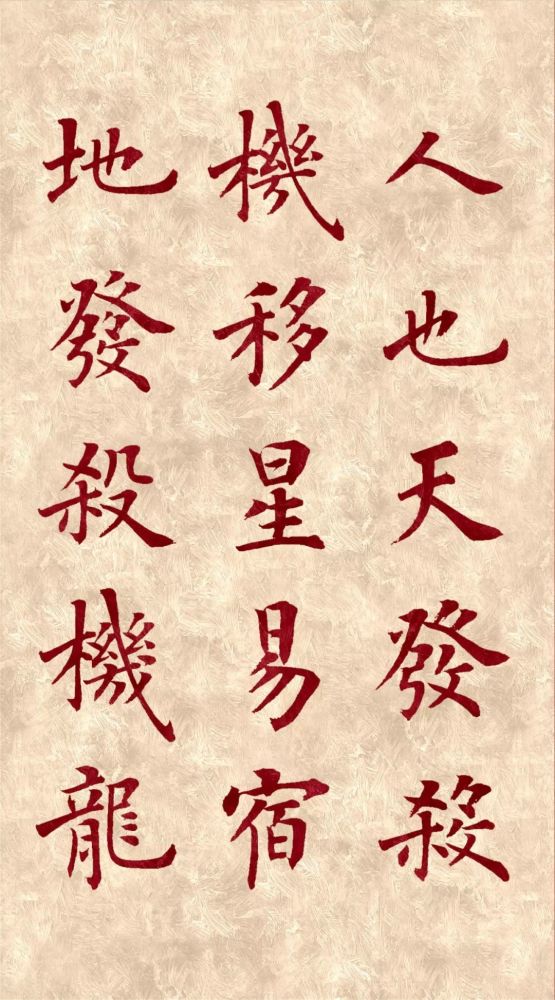 人也天發殺
機移星易宿
地發殺機龍